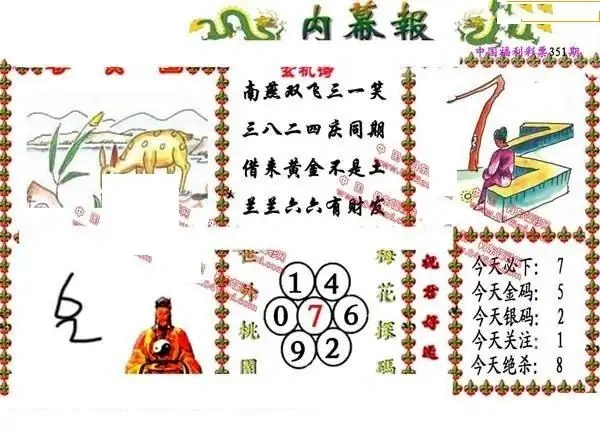 内幕報
中国福利彩票351期
玄机诗
南燕双飞三一笑
三八二四庆同期
借来黄金不是土
兰兰六六有财发
世外桃園
1 4
0 7 6
9 2
梅花探碼
祝君好运
今天必下: 7
今天金码: 5
今天银码: 2
今天关注: 1
今天绝杀: 8